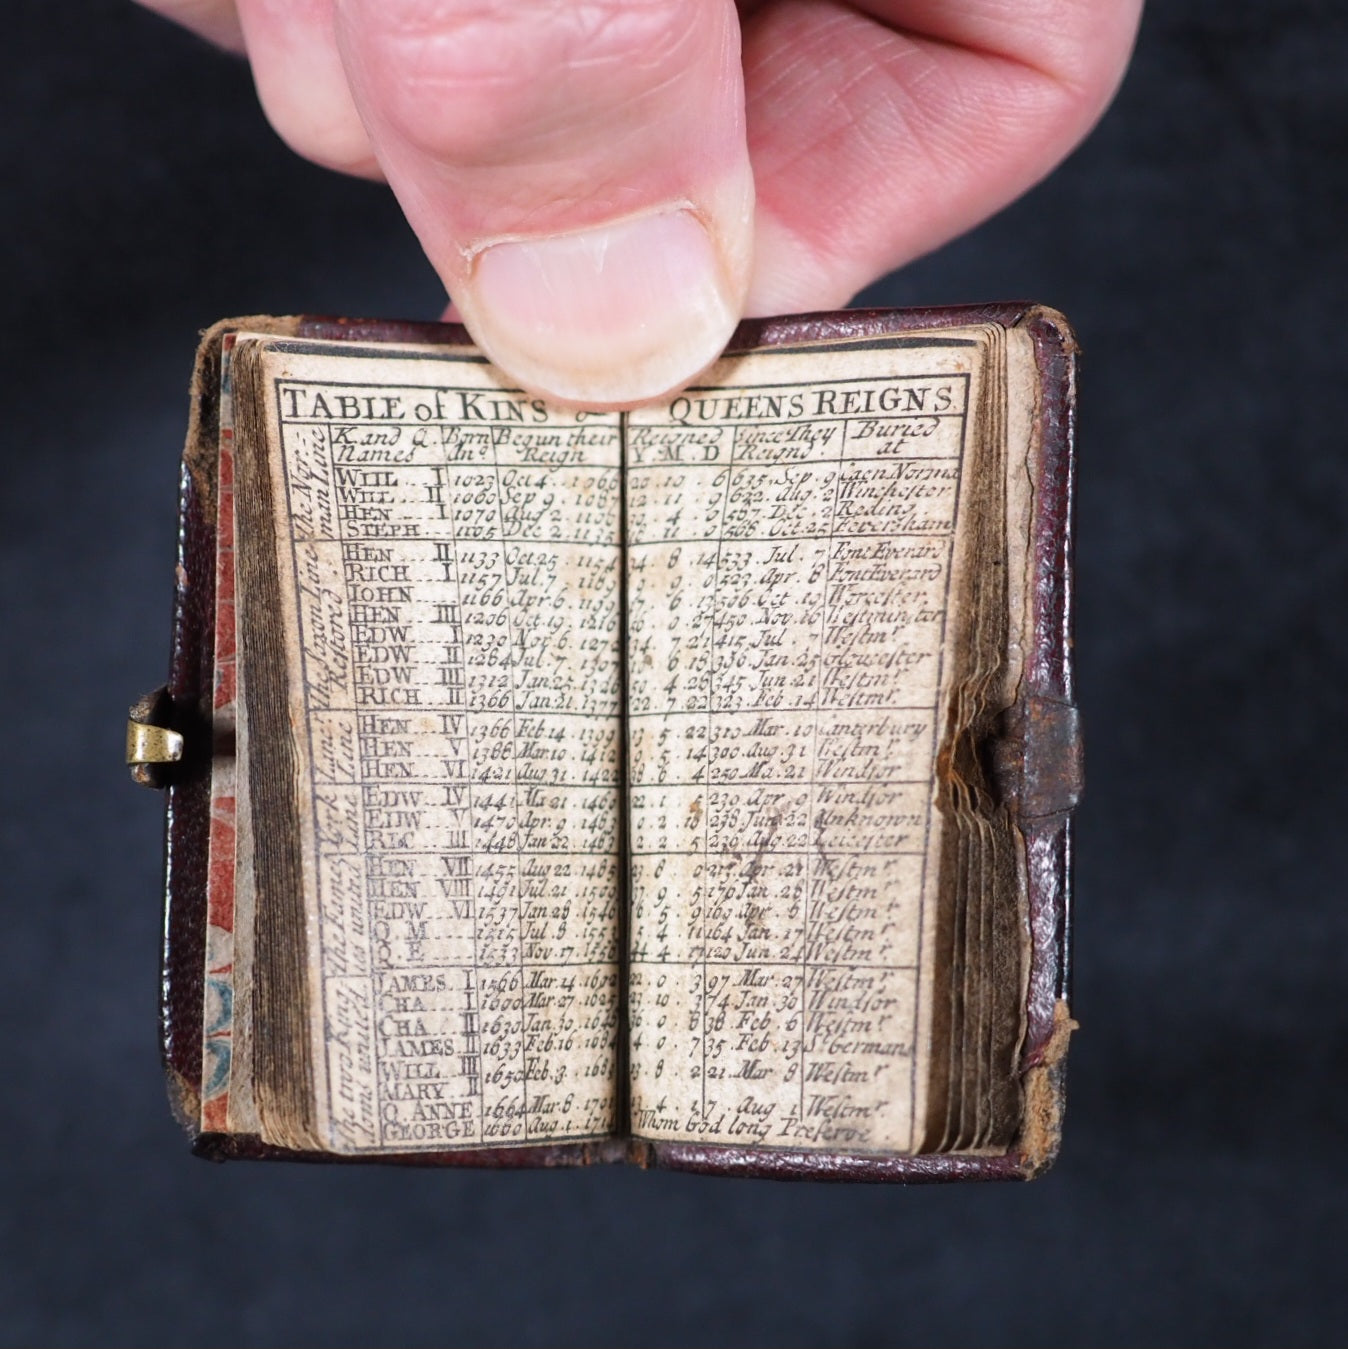 TABLE of KINS & QUEENS REIGNS.
K. and Q. Names Born Anº Begun their Reign Reigned Y. M. D since They Reignd Buried at
The Norman Line
WILL I 1023 Oct 4. 1066 20 10 6 635. Sep. 9 Caen Norma
WILL II 1060 Sep 9. 1087 12 11 9 622. Aug. 2 Winchester
HEN I 1070 Aug 2. 1100 4 567 Dec 2 Reding
STEPH 1105 Dec 2. 1135 11 568 Oct. 25 Feversham
The Saxon Line Restored
HEN II 1133 Oct 25 1154 34 8 14 533 Jul. 7 Font Everard
RICH I 1157 Jul. 7. 1189 9 9 0 523 Apr. 8 Font Everard
IOHN 1166 Apr. 6. 1199 17 6 Oct 19 Worcester
HEN III 1206 Oct 19. 1216 0 27 450 Nov. 16 Westminster
EDW I 1239 Nov 6. 1272 34 7 21 415 Jul. 7 Westmr.
EDW II 1284 Jul. 7. 1307 6 18 Jan. 25 Glowcester
EDW III 1312 Jan 25. 1326 50 4 26 345 Jun. 21 Westmr.
RICH II 1366 Jan 21. 1377 22 7 22 323 Feb. 14 Westmr.
Line
HEN IV 1366 Feb 14. 1399 13 5 22 310 Mar. 10 Canterbury
HEN V 1388 Mar. 10. 1412 9 5 14 300 Aug. 31 Westmr.
HEN VI 1421 Aug 31. 1422 38 6 4 250 Ma. 21 Windsor
York Line
EDW IV 1441 Ma 21. 1460 22 1 5 239 Apr. 9 Windsor
EDW V 1470 Apr. 9. 1483 0 2 18 238 Jun 22 Unknown
RIC III 1448 Jan 22. 1483 2 2 5 236 Aug 22 Leicester
The Families united
HEN VII 1455 Aug 22. 1485 23 8 0 Apr. 21 Westmr.
HEN VIII 1491 Jul. 21. 1509 37 9 5 176 Jan. 28 Westmr.
EDW VI 1537 Jan 28. 1546 6 5 9 169 Apr. 6 Westmr.
Q. M 1515 Jul. 8. 5 4 11 164 Jan. 17 Westmr.
Q. E 1533 Nov. 17. 1558 44 4 17 120 Jun. 24 Westmr.
The two Kingdoms united
JAMES I 1566 Mar. 14. 1602 22 0 3 97 Mar. 27 Westmr.
CHA I 1600 Mar 27. 1625 23 10 3 74 Jan. 30 Windsor
CHA II 1630 Jan. 30. 1648 36 0 8 38 Feb. 6 Westmr.
JAMES II 1633 Feb 16. 1684 4 0 7 35 Feb. 13 St. Germans
WILL III MARY II 1650 Feb. 3. 168 13 8 2 21 Mar 8 Westmr
Q. ANNE 1664 Mar. 8. 1701 4 1 7 Aug 1 Westmr.
GEORGE 1660 Aug. 1. 171 Whom God long Preserve.